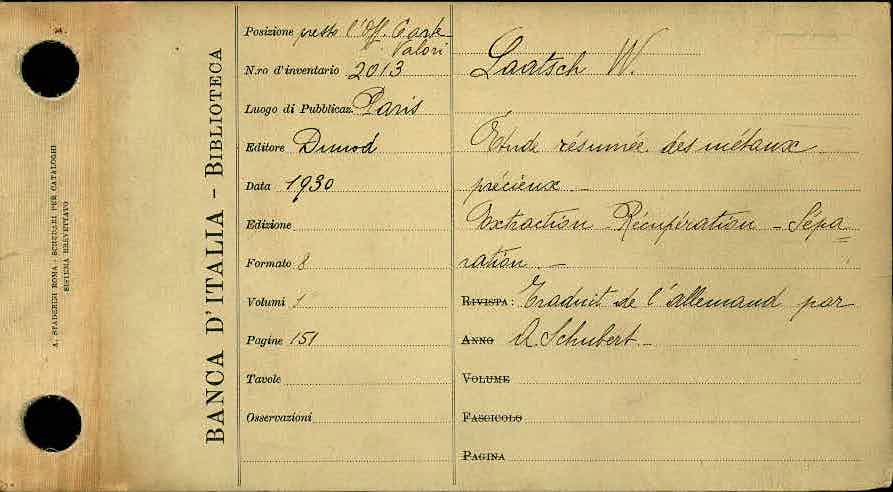 A. STADERINI ROMA - SCHEDARI PER CATALOGHI
SISTEMA BREVETTATO
BANCA D'ITALIA - BIBLIOTECA
Posizione presso l'Off. Carte
Valori
N.ro d'inventario 2013
Luogo di Pubblicaz. Paris
Editore Dunod
Data 1930
Edizione
Formato 8
Volumi 1
Pagine 151
Tavole
Osservazioni
Laatsch W.
Étude résumée des métaux
précieux -
Extraction - Récupération - Sépa=
ration -
RIVISTA: Traduit de l'allemand par
ANNO A. Schubert -
VOLUME
FASCICOLO
PAGINA